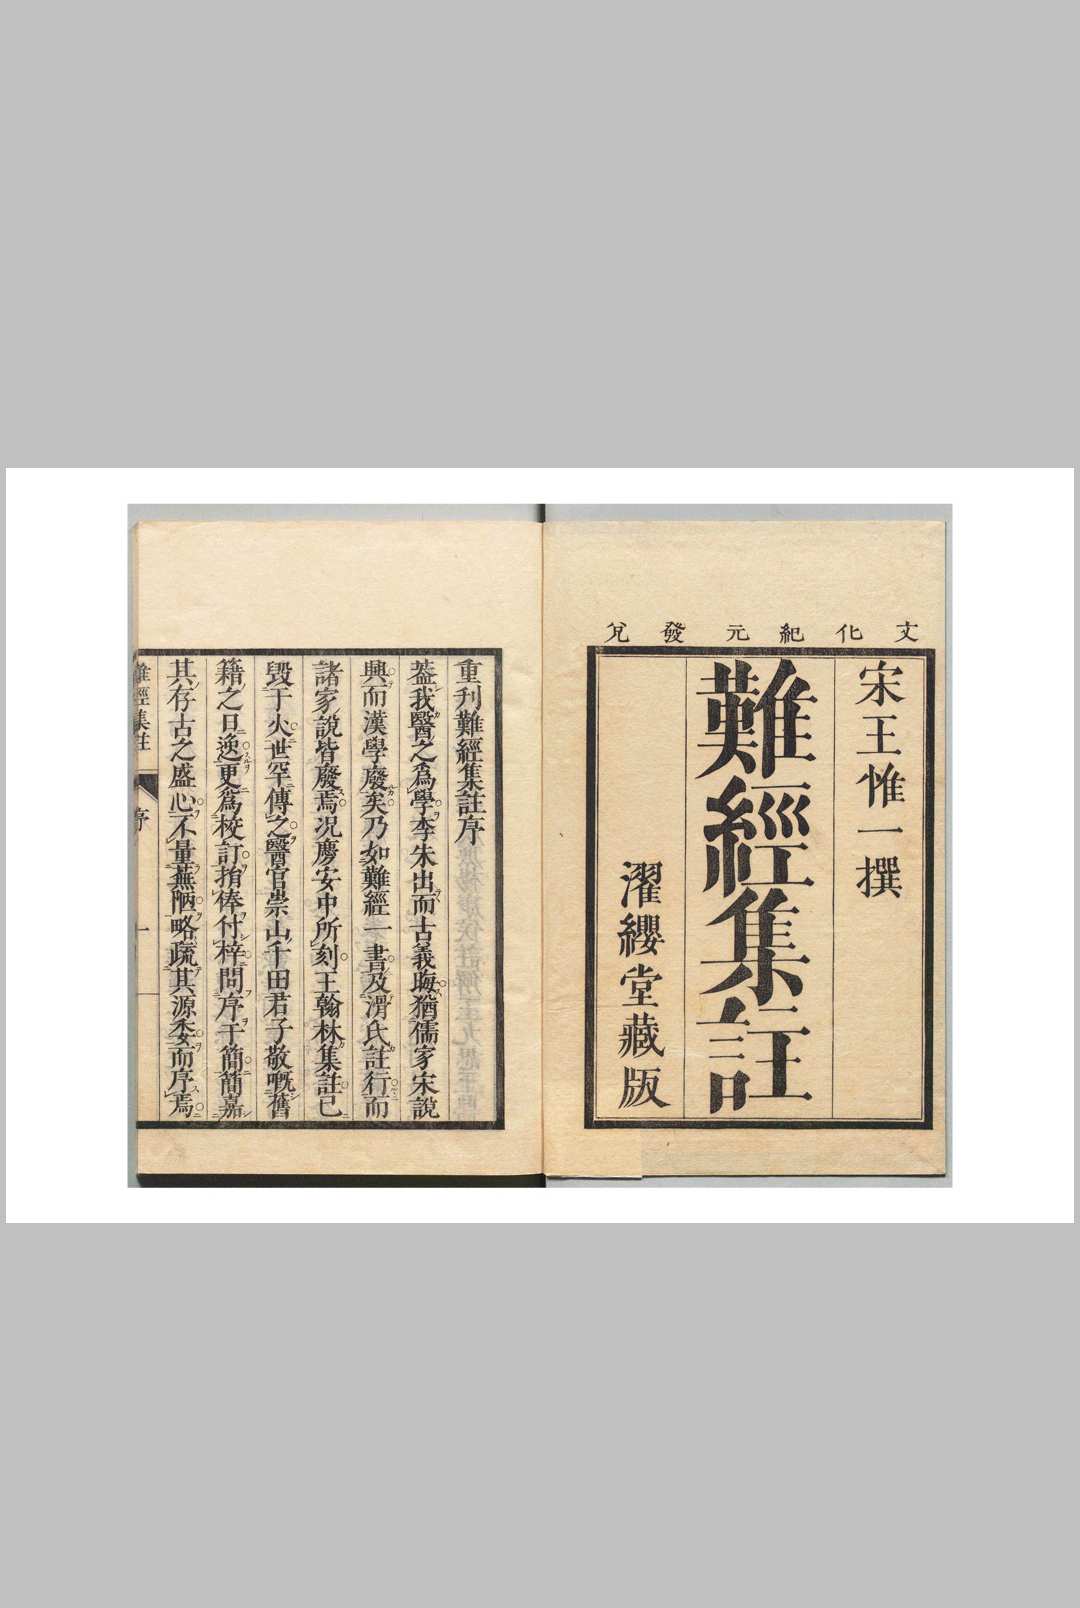 文化紀元發兌
宋王惟一撰
難經集註
濯纓堂藏版
重刋難經集註序
葢我醫之爲學李朱出而古義晦猶儒家宋説
興而漢學廢矣乃如難經一書及滑氏註行而
諸家説皆廢焉况慶安中所刻王翰林集註已
毀于火世罕傳之醫官崇山千田君子敬嘅舊
籍之日逸更爲校訂捐俸付梓問序于簡簡嘉
其存古之盛心不量蕪陋略疏其源委而序焉
難經集註
序
一